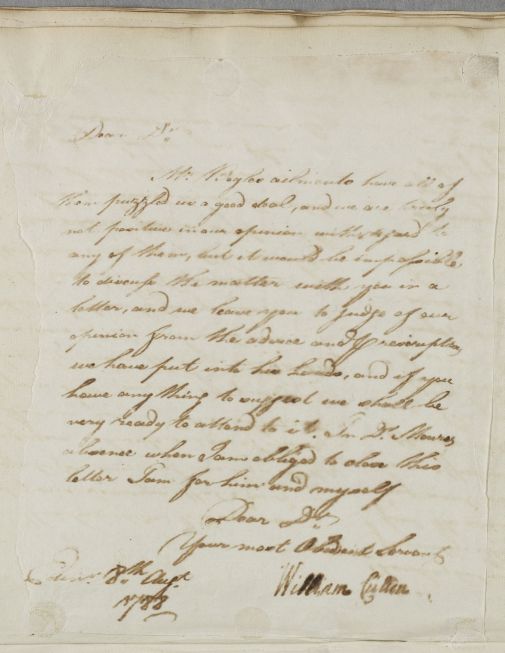 Dear Dr
Mr. ailments have all of
them puzzled us a good deal, and we are
not positive in our opinion with regard to
any of them, but it would be impossible
to discuss the matter with you in a
letter, and we leave you to judge of our
opinion from the advice and
we have put into his hands, and if you
have anything to suggest we shall be
very ready to attend to it. In Dr
absence when I am obliged to close this
letter I am for him and myself
Dear Dr
Your most Obedient Servant
William Cullen
Edinr 8th Augt